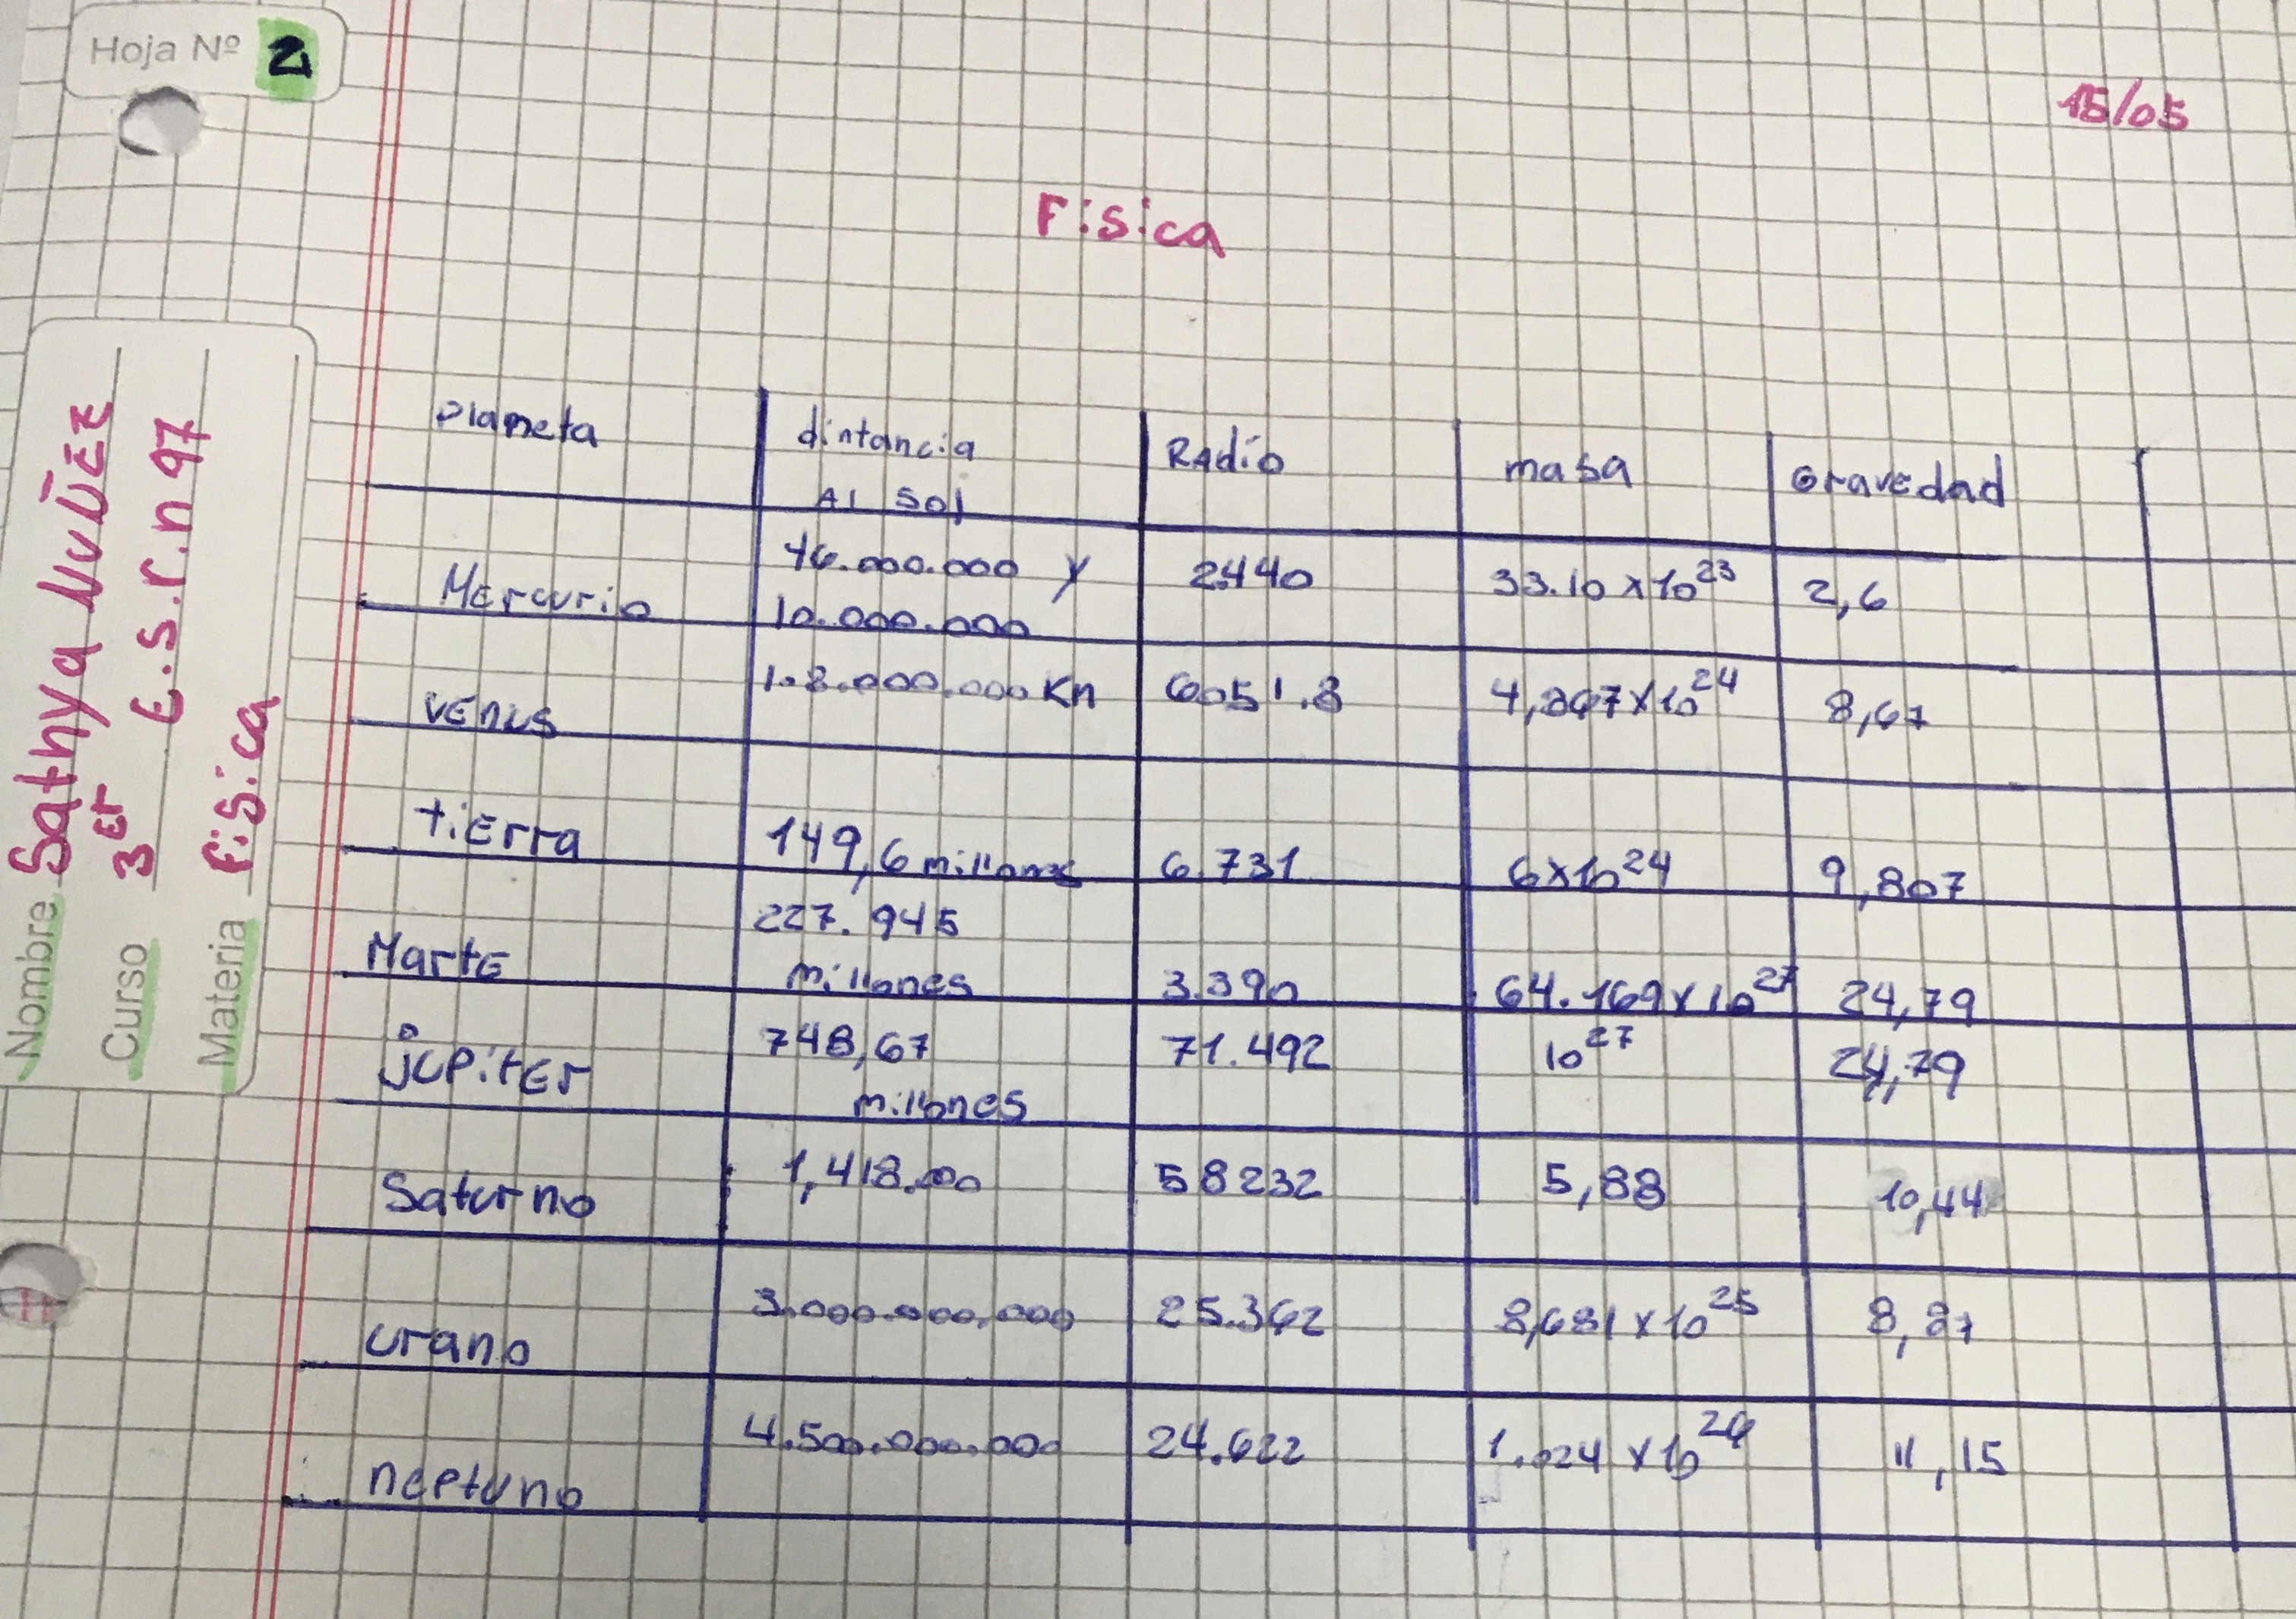 Hoja Nº 2
15/05
Fisica
Nombre Sathya NuÑEz
Curso 3 Er E.s.r.n 97
Materia fisica
Planeta dintancia Radio masa Gravedad
Al Sol
46.000.000 y 2440 33.10 x 10²³ 2,6
Mercurio 10.000.000
1.8.000.000 Kn 6051.8 4,867 x 10²⁴ 8,67
VEnus
tiErra 149,6 millones 6.731 6x10²⁴ 9,807
227.945
MartE millones 3.390 64.169 x 10²⁷ 24,79
jupitEr 748,67 71.492 10²⁷ 24,79
millones
Saturno 1,418.00 58232 5,88 10,44
3.000.000.000 25.362 8,681 x 10²⁵ 8,87
urano
4.500.000.000 24.622 1.024 x 10²⁶ 11,15
neptuno